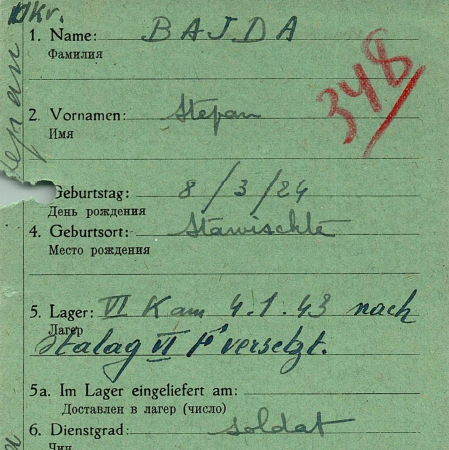 Ukr.
1. Name: BAJDA
Фамилия
348
2. Vornamen: Stepan
Имя
Geburtstag: 8/3/24
День рождения
4. Geburtsort: Stawischte
Место рождения
5. Lager: VI K am 4.1.43 nach
Лагерь
Stalag VI F versetzt.
5a. Im Lager eingeliefert am:
Доставлен в лагерь (число)
6. Dienstgrad: Soldat
Чин